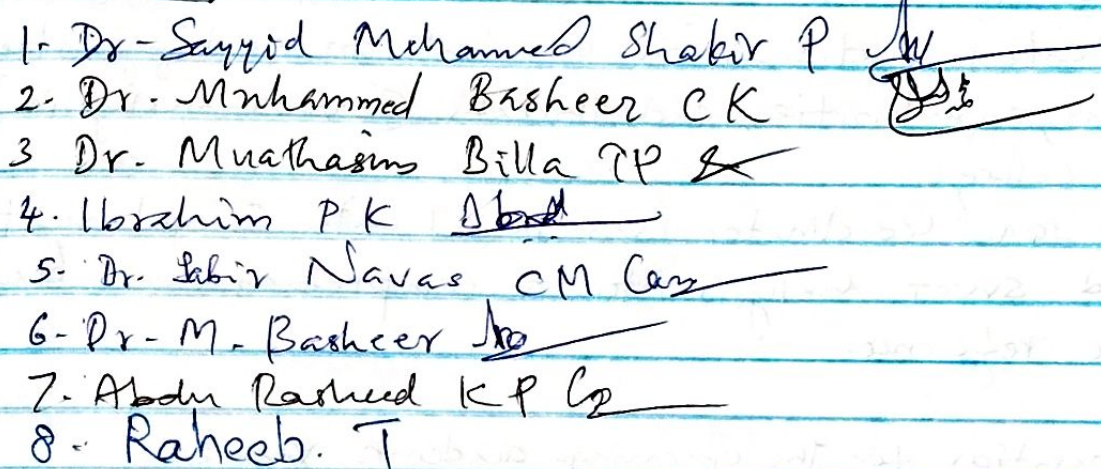 1- Dr- Sayyid Mohammed Shakir P
2- Dr. Muhammed Basheer C K
3 Dr. Muathasim Billa TP
4. Ibrahim P K
5- Dr. Sabir Navas CM
6- Dr- M. Basheer
7. Abdu Rasheed K P
8. Raheeb. T